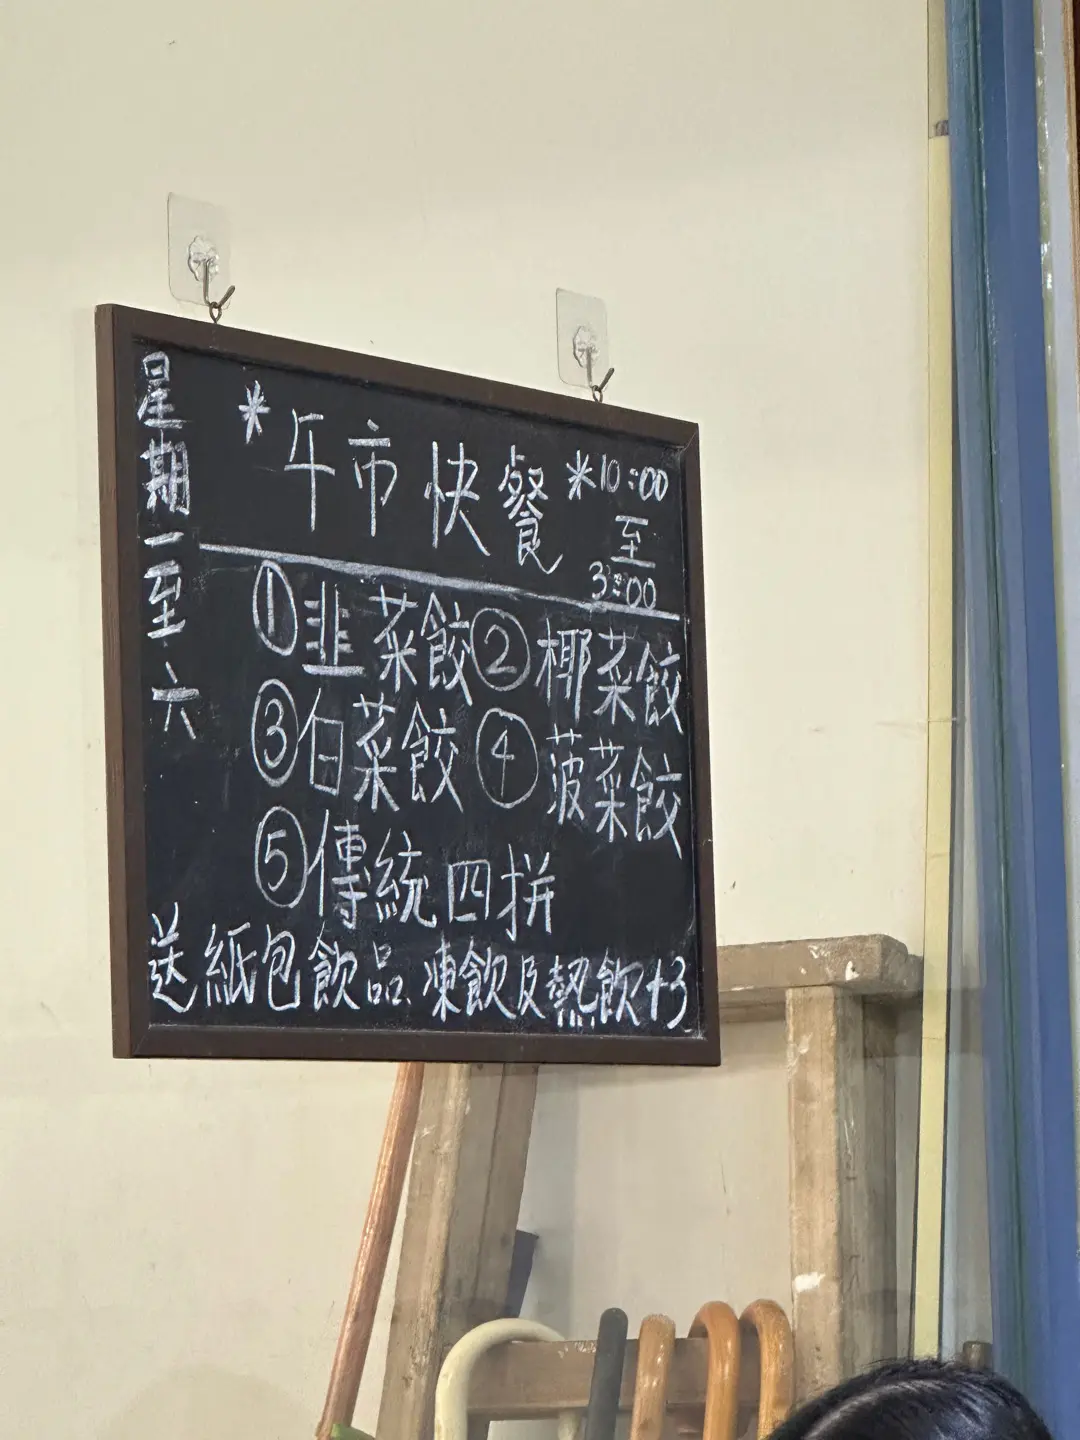 星期一至六
*午市快餐*10:00
至
3:00
①韭菜餃②椰菜餃
③白菜餃④菠菜餃
⑤傳統四拼
送紙包飲品.凍飲及熱飲+3